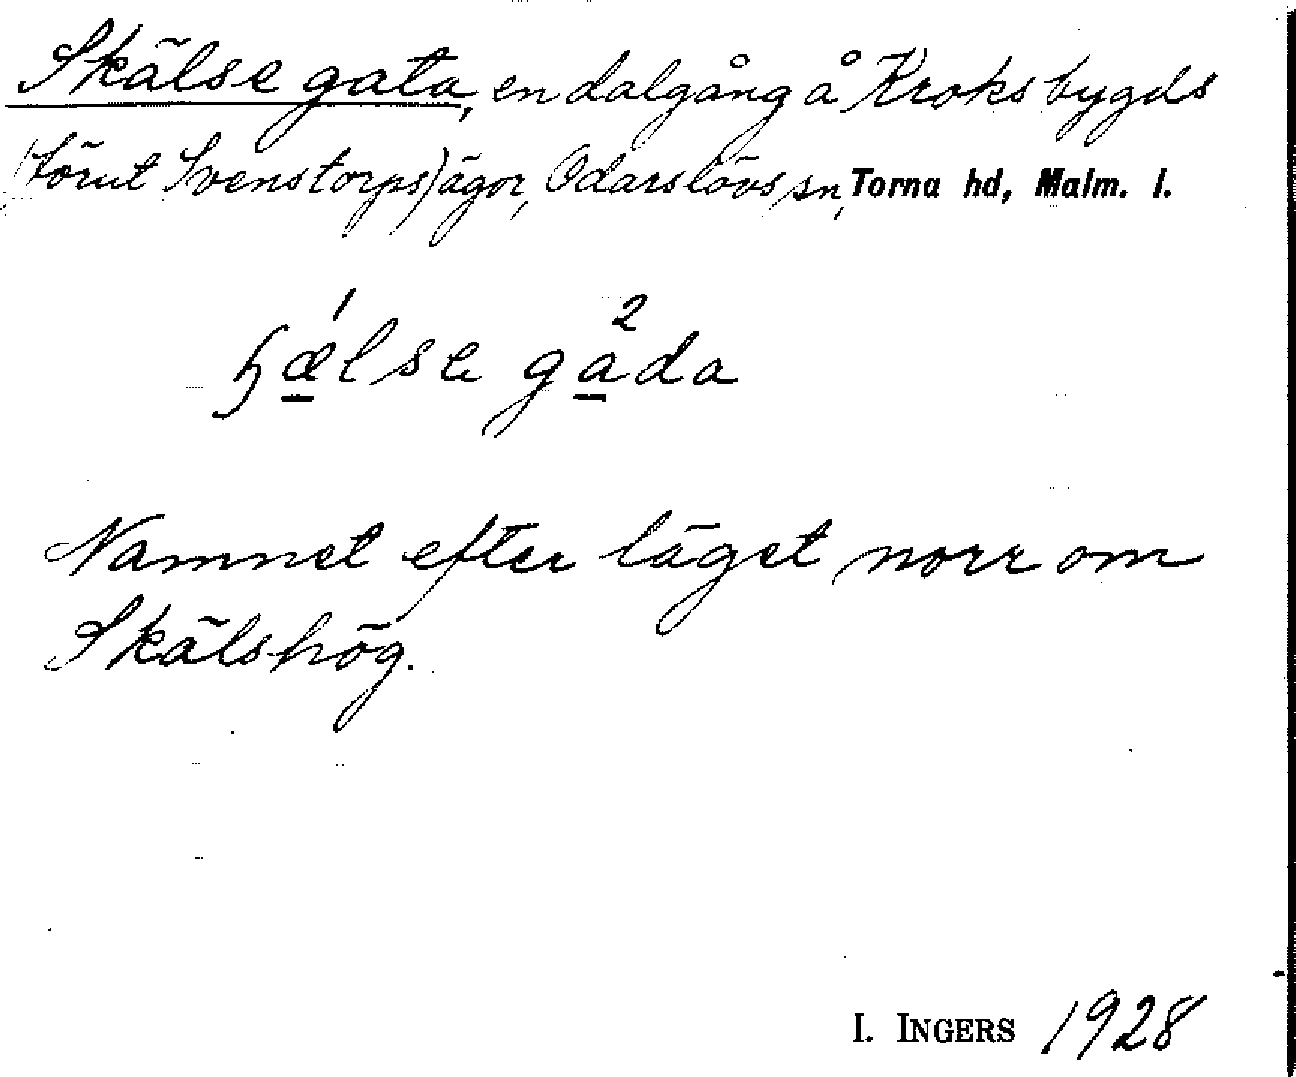 Skälse gata, en dalgång å Kroksbygds
(förut Svenstorps) ägor, Odarslövs sn, Torna hd, Malm. l.
ɧǽ̱lse ga̱²da
Namnet efter läget norr om
Skälshög.
I. INGERS 1928